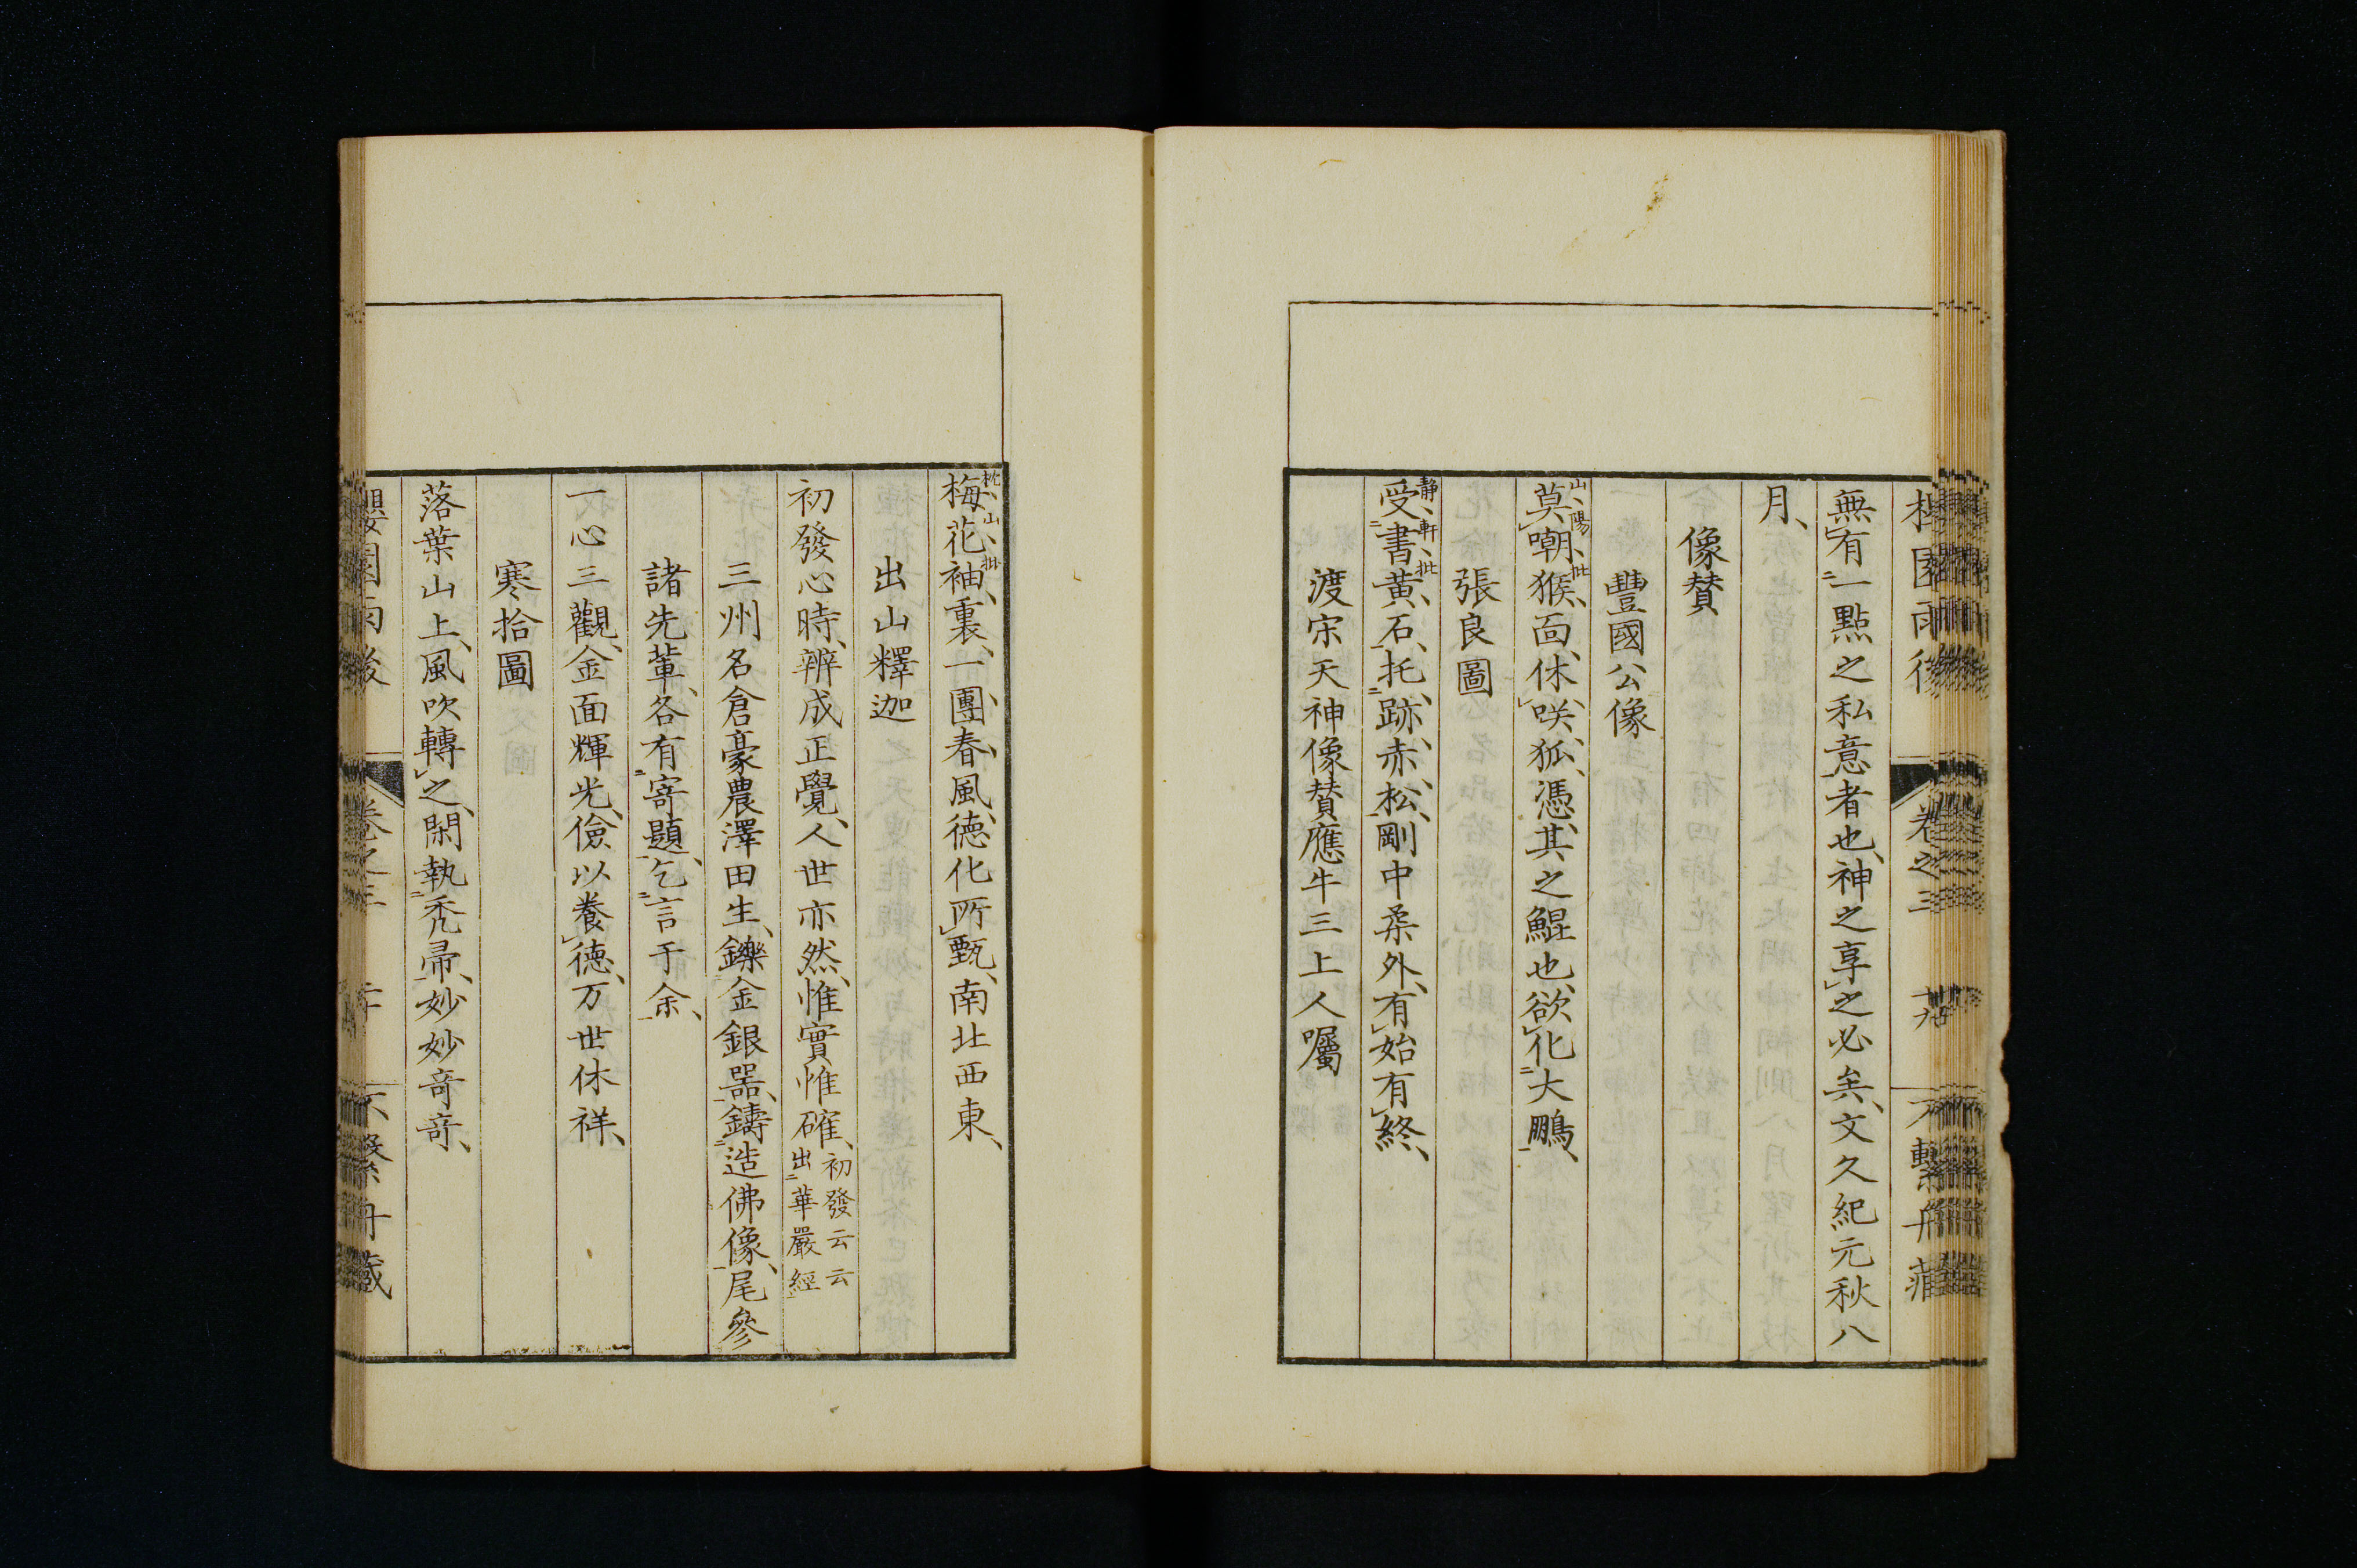 無有一點之私意者也、神之享之必矣、文久紀元秋八
月、
像賛
豐國公像
山陽批
莫嘲猴面、休咲狐、憑其之鯤也、欲化大鵬、
張良圖
静軒批
受書黄石、托跡赤松、剛中柔外、有始有終、
渡宋天神像賛應牛三上人囑
枕山批
梅花袖裏、一團春風、徳化所甄、南北西東、
出山釋迦
初發心時、辨成正覺、人世亦然、惟實惟確、初發云云
出華嚴經
三州名倉豪農澤田生、鑠金銀器、鑄造佛像、尾參
諸先輩、各有寄題、乞言于余、
一心三觀、金面輝光、儉以養徳、万世休祥、
寒拾圖
落葉山上、風吹轉之、閑執禿帚、妙妙奇奇、